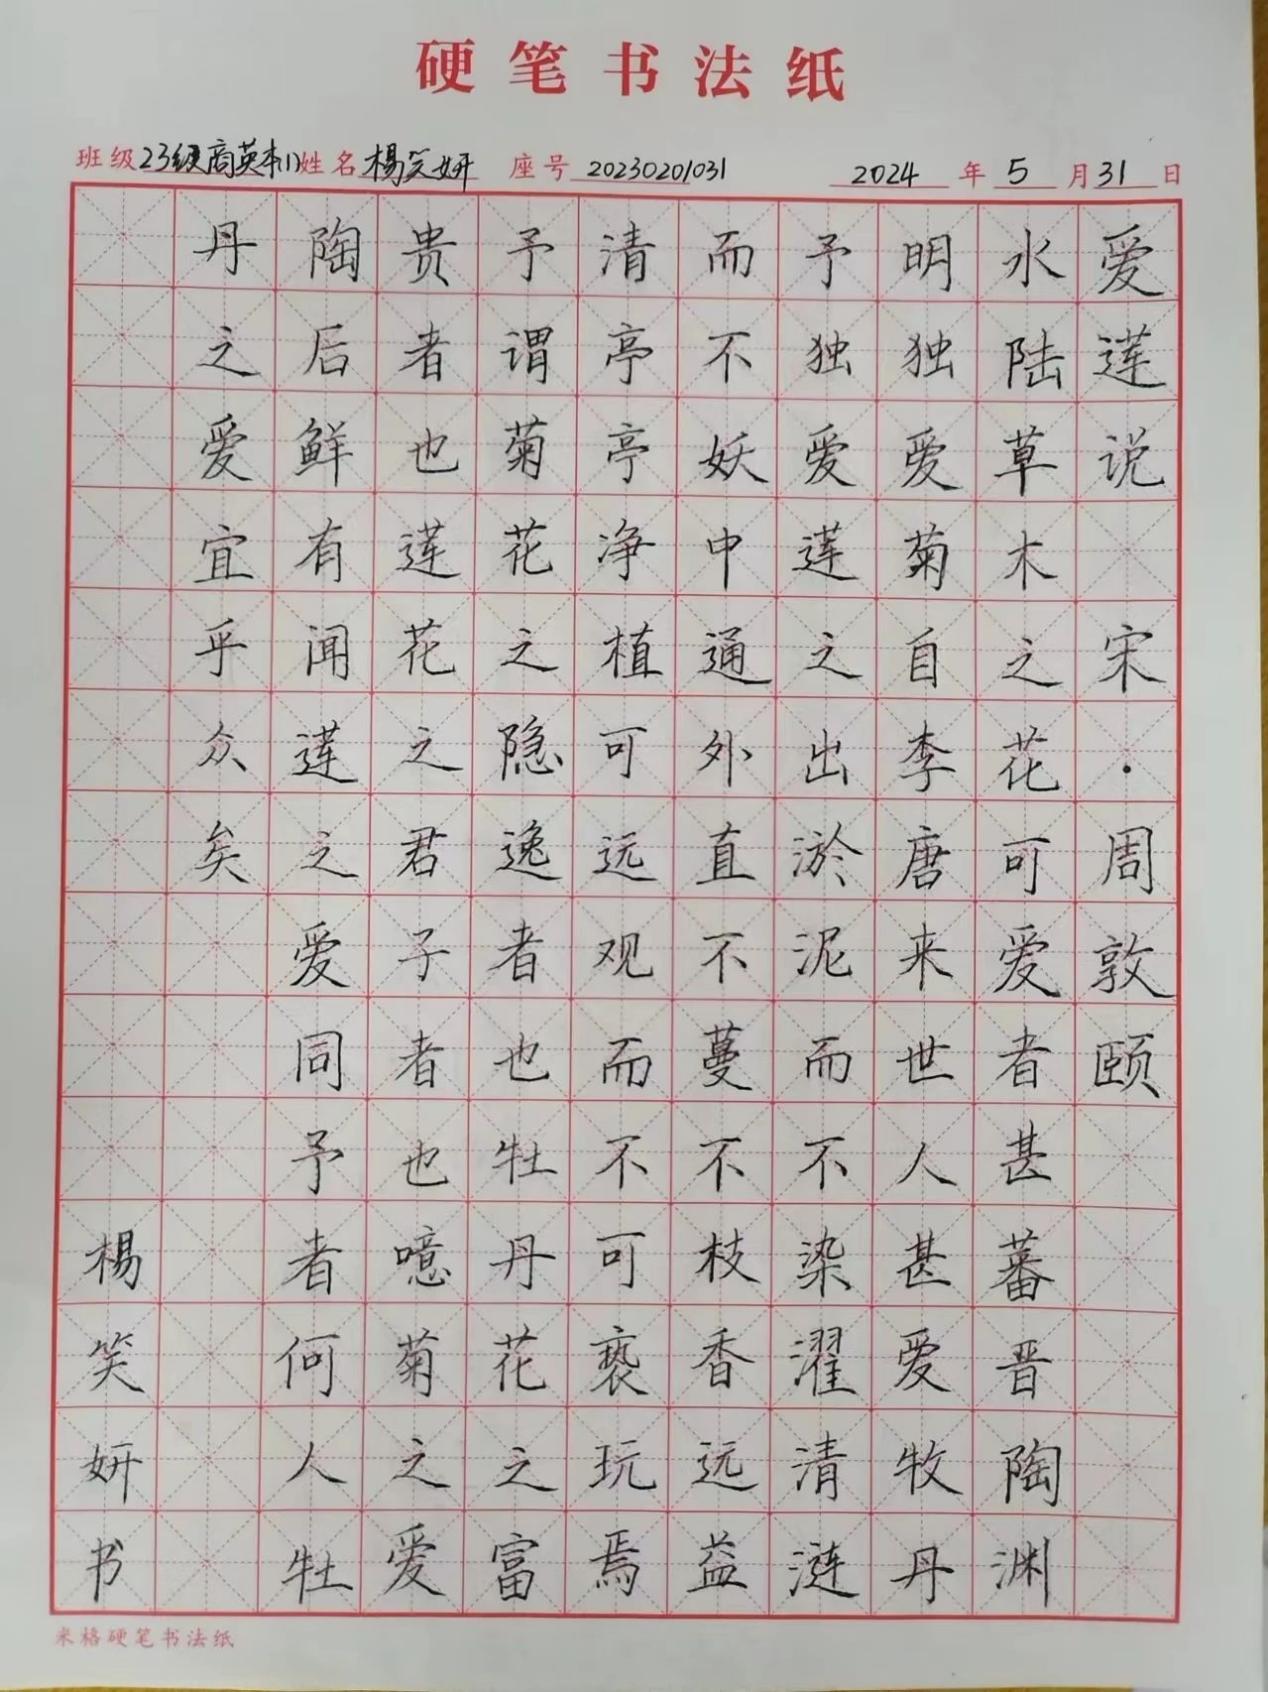 硬笔书法纸
班级 23级商英本(1) 姓名 杨笑妍 座号 20230201031 2024 年 5 月 31 日
爱莲说 宋·周敦颐
水陆草木之花可爱者甚蕃晋陶渊
明独爱菊自李唐来世人甚爱牧丹
予独爱莲之出淤泥而不染濯清涟
而不妖中通外直不蔓不枝香远益
清亭亭净植可远观而不可亵玩焉
予谓菊花之隐逸者也牡丹花之富
贵者也莲花之君子者也噫菊之爱
陶后鲜有闻莲之爱同予者何人牡
丹之爱宜乎众矣
杨笑妍书
米格硬笔书法纸